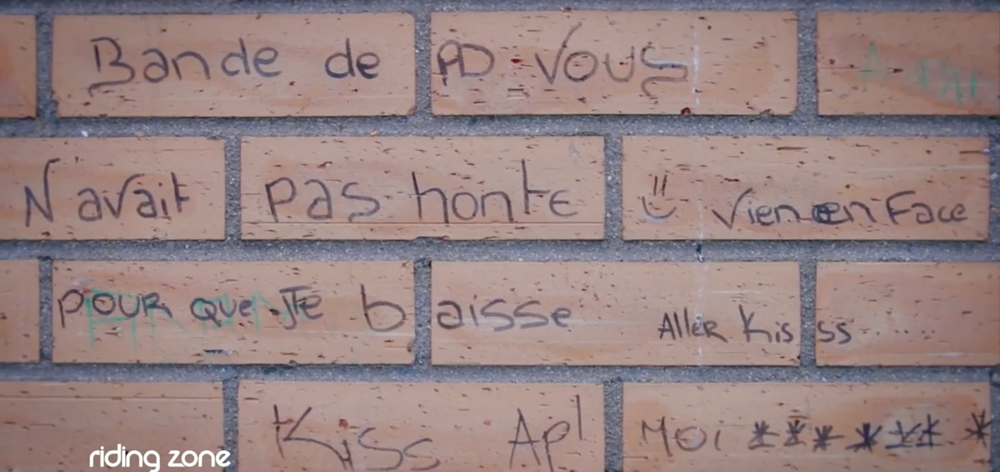 Bande de PD VOUS
N'avait pas honte Vien en Face
POUR que Je baisse Aller Kisss
Kiss Apl Moi *******
riding zone